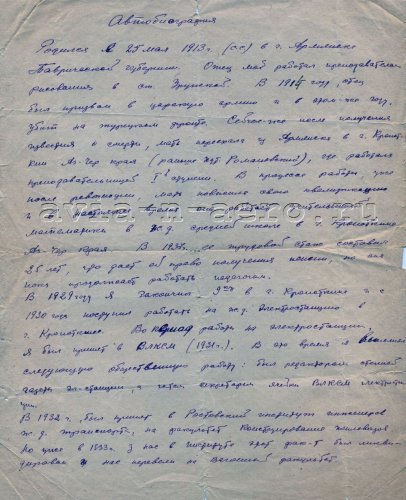 Автобиография
Родился я 25 мая 1913 г. (сс) в г. Армянске
Таврической губернии. Отец мой работал преподавателем
рисования в ст. В 1914 году, отец
был призван в царскую армию и в этом-же году,
убит на турецком фронте. Сейчас-же после получения
известия о смерти, мать переехала из Армянска в г. Кропот-
кин Аз-Чер края (раньше хут. Романовский), где работала
преподавательницей 1й ступени. В процессе работы, уже
после революции, мать повысила свою квалификацию
и в настоящее время она работает учительницей
математики в ж.д. средней школе в г. Кропоткине
Аз-Чер края. В ее трудовой стаж составил
25 лет, что дает ей право получения пенсии, но она
продолжает работать педагогом.
В 1929 году я закончил в г. Кропоткине и с
1930 года поступил работать на ж.д. электростанцию в
г. Кропоткине. Во период работы на электростанции,
я был принят в ВЛКСМ (1931 г.). В это время я
следующую общественную работу: был редактором стенной
газеты эл-станции, а затем секретарем ячейки ВЛКСМ электростан-
ции.
В 1932 г. был принят в Ростовский институт инженеров
ж.д. транспорта, на факультет Конструирование тепловозов
но уже в 1933 г. у нас в институте этот фак-т был ликви-
дирован и нас перевели на Вагонный факультет.
avia-n-aero.ru